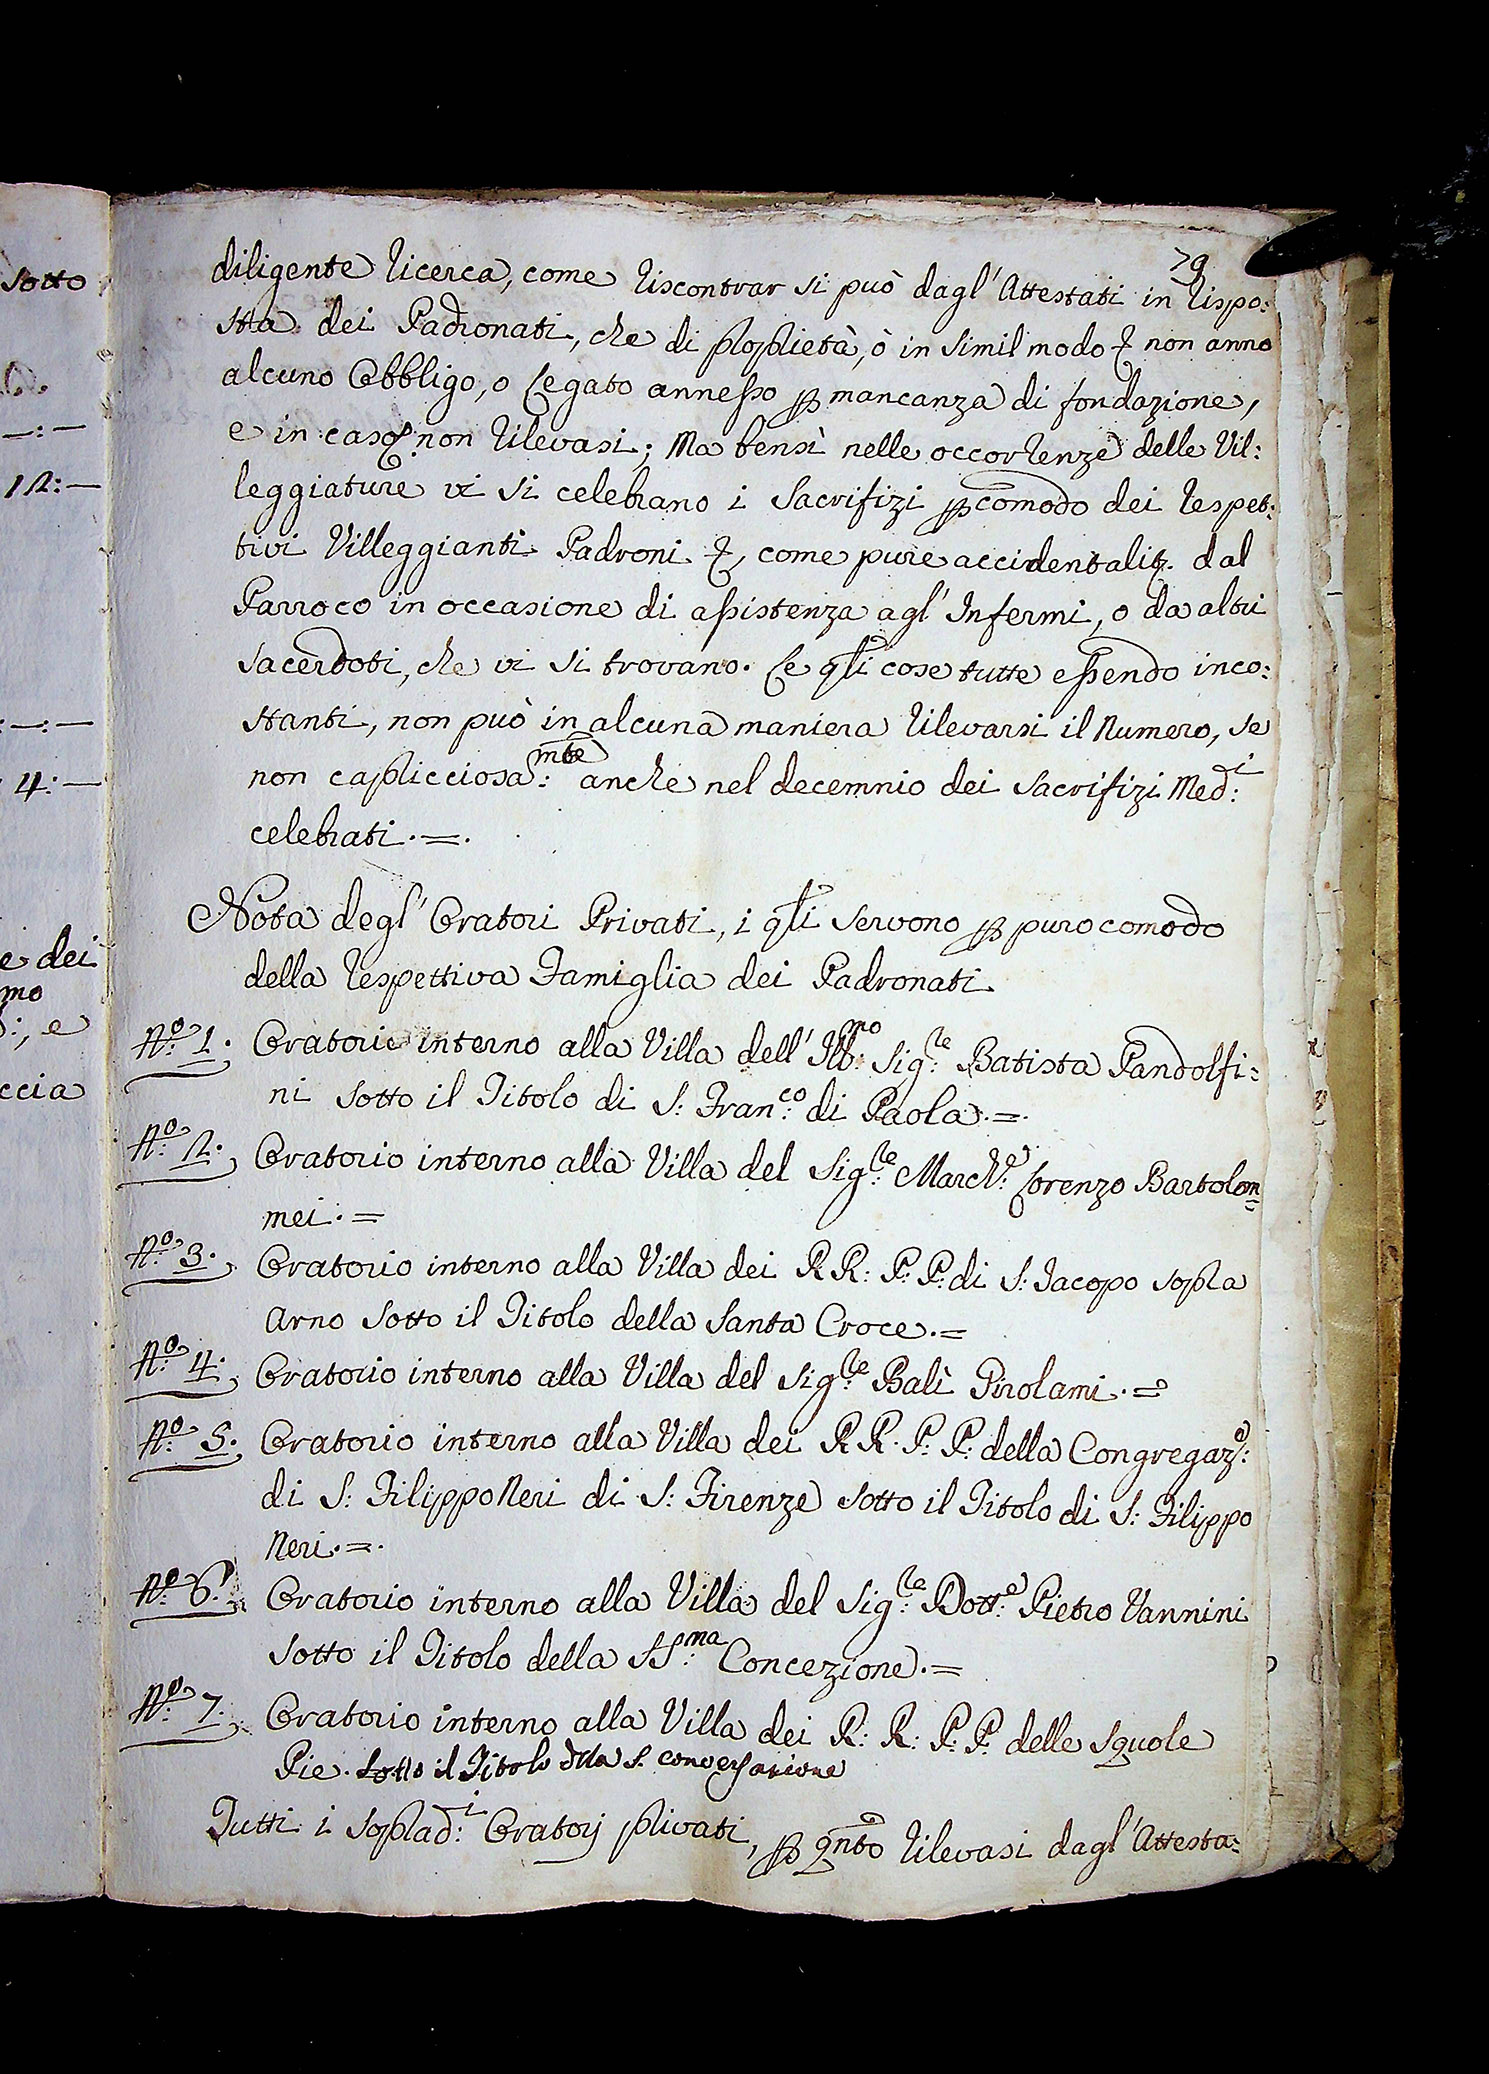 79
diligente ricerca, come riscontrar si può dagl' Attestati in rispo:
sta dei Padronati, che di proprietà, ò in simil modo & non anno
alcuno Obbligo, o Legato annesso p mancanza di fondazione,
e in caso non rilevasi; Ma bensì nelle occorrenze delle Vil:
leggiature vi si celebrano i Sacrifizi p comodo dei respet:
tivi Villeggianti Padroni &, come pure accidentalit. dal
Parroco in occasione di assistenza agl' Infermi, o da altri
Sacerdoti, che vi si trovano. Le qli cose tutte essendo inco:
stanti, non può in alcuna maniera rilevarsi il Numero, se
non capricciosa:mte anche nel decemnio dei Sacrifizi Med:i
celebrati. =.
Nota degl' Oratori Privati, i qli servono p puro comodo
della respettiva Famiglia dei Padronati.
No: 1. Oratorio interno alla Villa dell' Ill:mo Sig:re Batista Pandolfi:
ni sotto il Titolo di S: Fran:co di Paola. =.
No: 2. Oratorio interno alla Villa del Sig:re March:e Lorenzo Bartolom=
mei. =
No: 3. Oratorio interno alla Villa dei R R: P: P: di S: Jacopo sopra
Arno sotto il Titolo della Santa Croce. =
No: 4. Oratorio interno alla Villa del Sig:re Balì Girolami. =
No: 5. Oratorio interno alla Villa dei R R. P: P: della Congregaz:e
di S: Filippo Neri di S: Firenze sotto il Titolo di S: Filippo
Neri. =.
No: 6. Oratorio interno alla Villa del Sig:re Dott:e Pietro Vannini
sotto il Titolo della SS:ma Concezione. =
No: 7. Oratorio interno alla Villa dei R: R: P: P: delle Squole
Pie. sotto il Titolo dlla S. conversazione
Tutti i soprad:i Oratorj privati, p qnto rilevasi dagl' Attesta:
sotto
12: —
4: —
e dei
mo
:, e
ccia